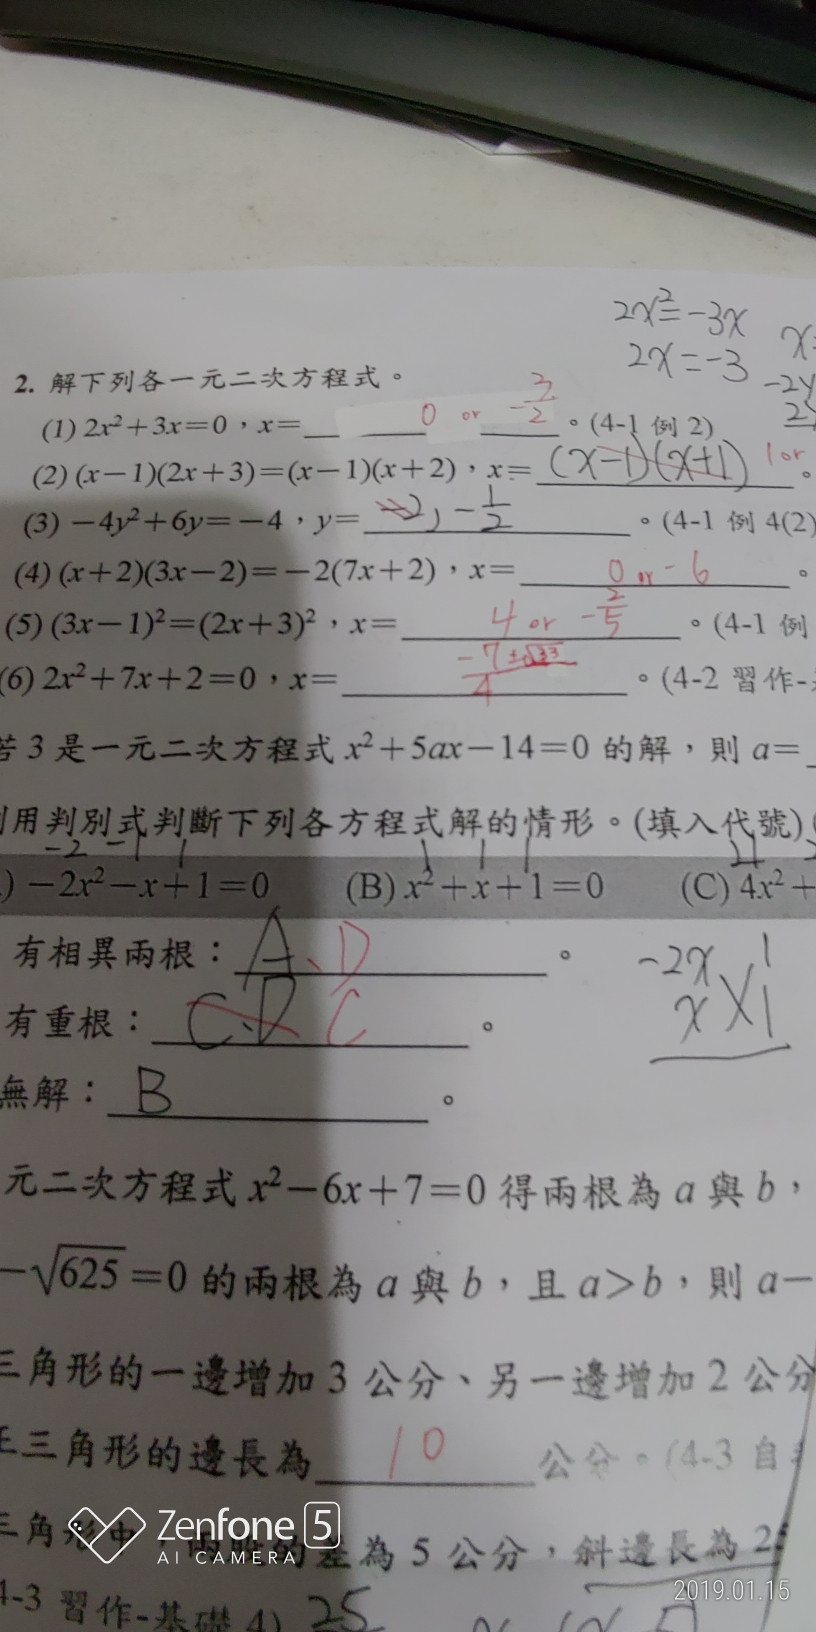 2x²=-3x
2x=-3
2. 解下列各一元二次方程式。
(1) 2x²+3x=0，x= 0 or -3/2 。(4-1 例 2)
(2) (x-1)(2x+3)=(x-1)(x+2)，x= (x-1)(x+1) 1 or 。
(3) -4y²+6y=-4，y= 2, -1/2 。(4-1 例 4(2)
(4) (x+2)(3x-2)=-2(7x+2)，x= 0 or -6 。
(5) (3x-1)²=(2x+3)²，x= 4 or -2/5 。(4-1 例
(6) 2x²+7x+2=0，x= -7±√33/4 。(4-2 習作-
若 3 是一元二次方程式 x²+5ax-14=0 的解，則 a=
利用判別式判斷下列各方程式解的情形。(填入代號)
-2 -1 1 1 1 1
) -2x²-x+1=0 (B) x²+x+1=0 (C) 4x²+
有相異兩根： A、D 。
-2x 1
x 1
有重根： C、D C 。
無解： B 。
元二次方程式 x²-6x+7=0 得兩根為 a 與 b，
-√625=0 的兩根為 a 與 b，且 a>b，則 a-
三角形的一邊增加 3 公分、另一邊增加 2 公分
正三角形的邊長為 10 公分。(4-3 自
三角形中，兩股的差為 5 公分，斜邊長為 25
4-3 習作-基礎 4) 25
Zenfone 5
AI CAMERA
2019.01.15